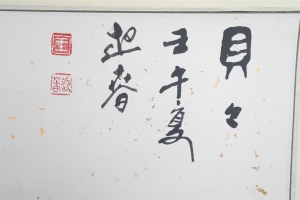 貝々
壬午夏
起春